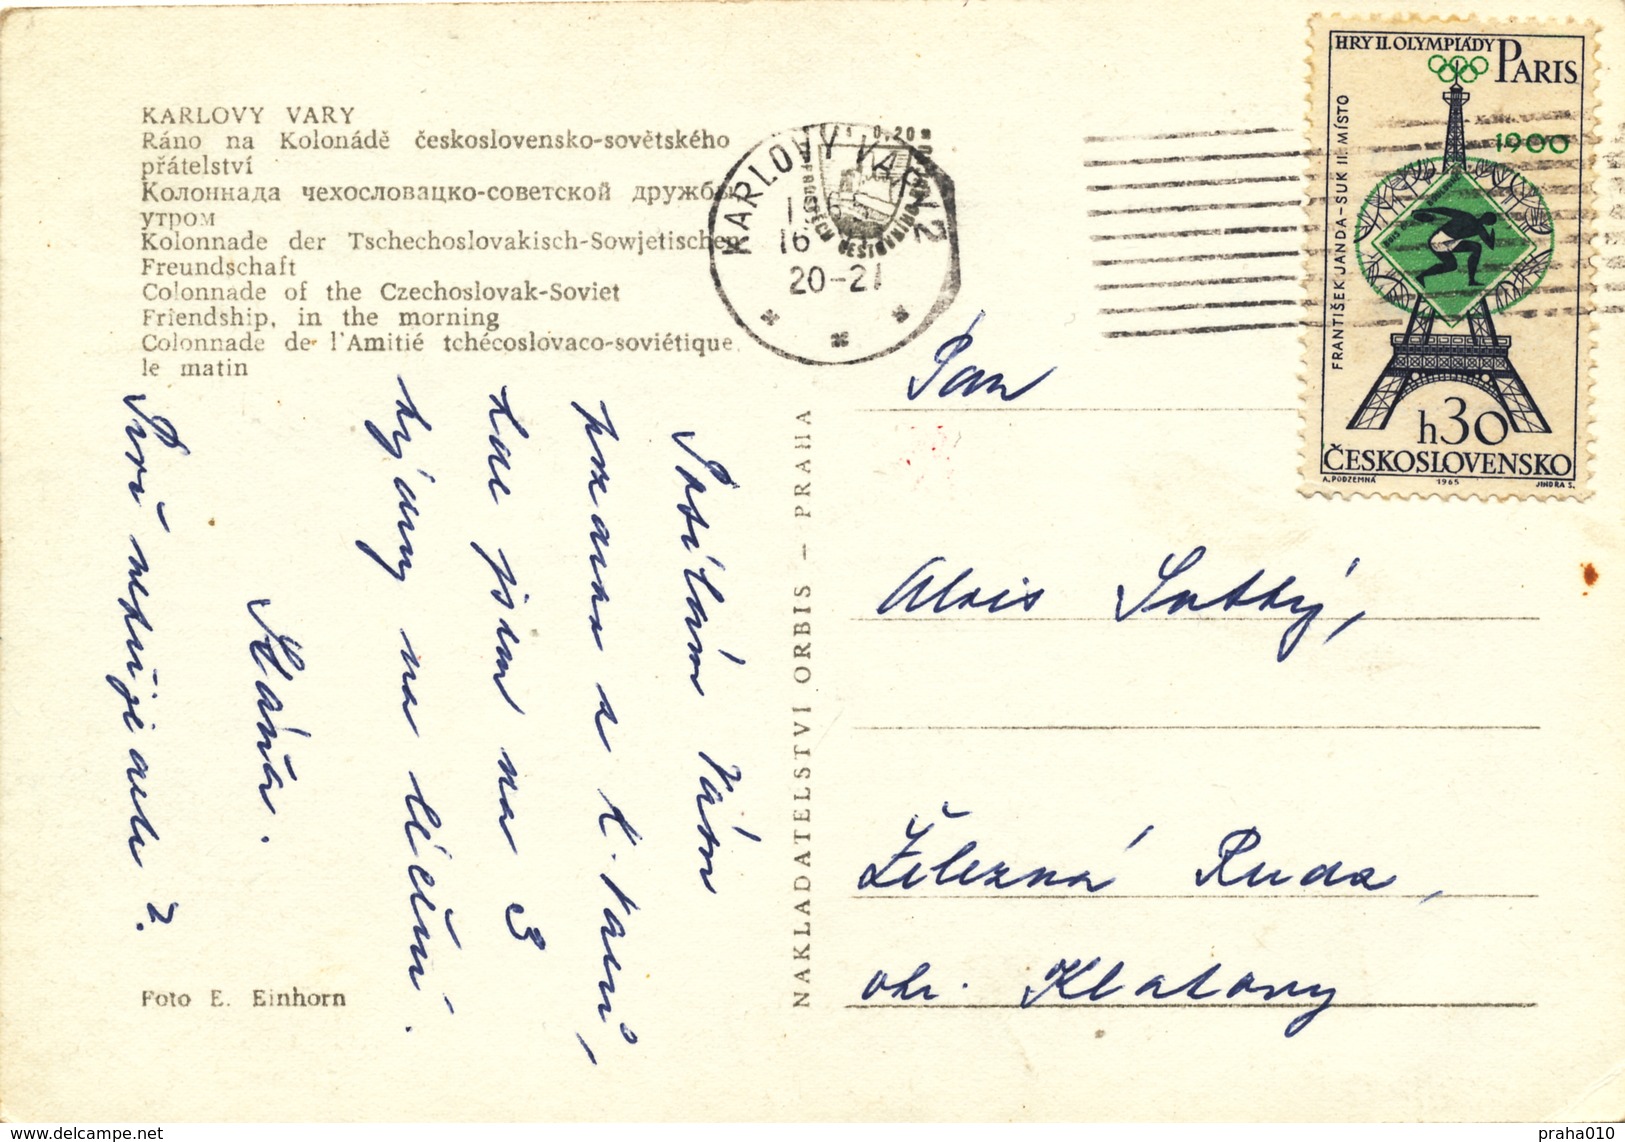 KARLOVY VARY
Ráno na Kolonádě československo-sovětského
přátelství
Колоннада чехословацко-советской дружбы
утром
Kolonnade der Tschechoslovakisch-Sowjetischen
Freundschaft
Colonnade of the Czechoslovak-Soviet
Friendship, in the morning
Colonnade de l'Amitié tchécoslovaco-soviétique
le matin
Posílám Vám
pozdrav z K. Varů,
kde jsem na 3
týdny na léčení.
Káťa.
Foto E. Einhorn
NAKLADATELSTVÍ ORBIS – PRAHA
KARLOVY VARY 2
16
20-21
HRY II. OLYMPIÁDY PARIS
1900
FRANTIŠEK JANDA-SUK II. MÍSTO
h30
ČESKOSLOVENSKO
A. PODZEMNÁ 1965 JINDRA S.
Pan
Alois
Železná Ruda,
okr. Klatovy
praha010